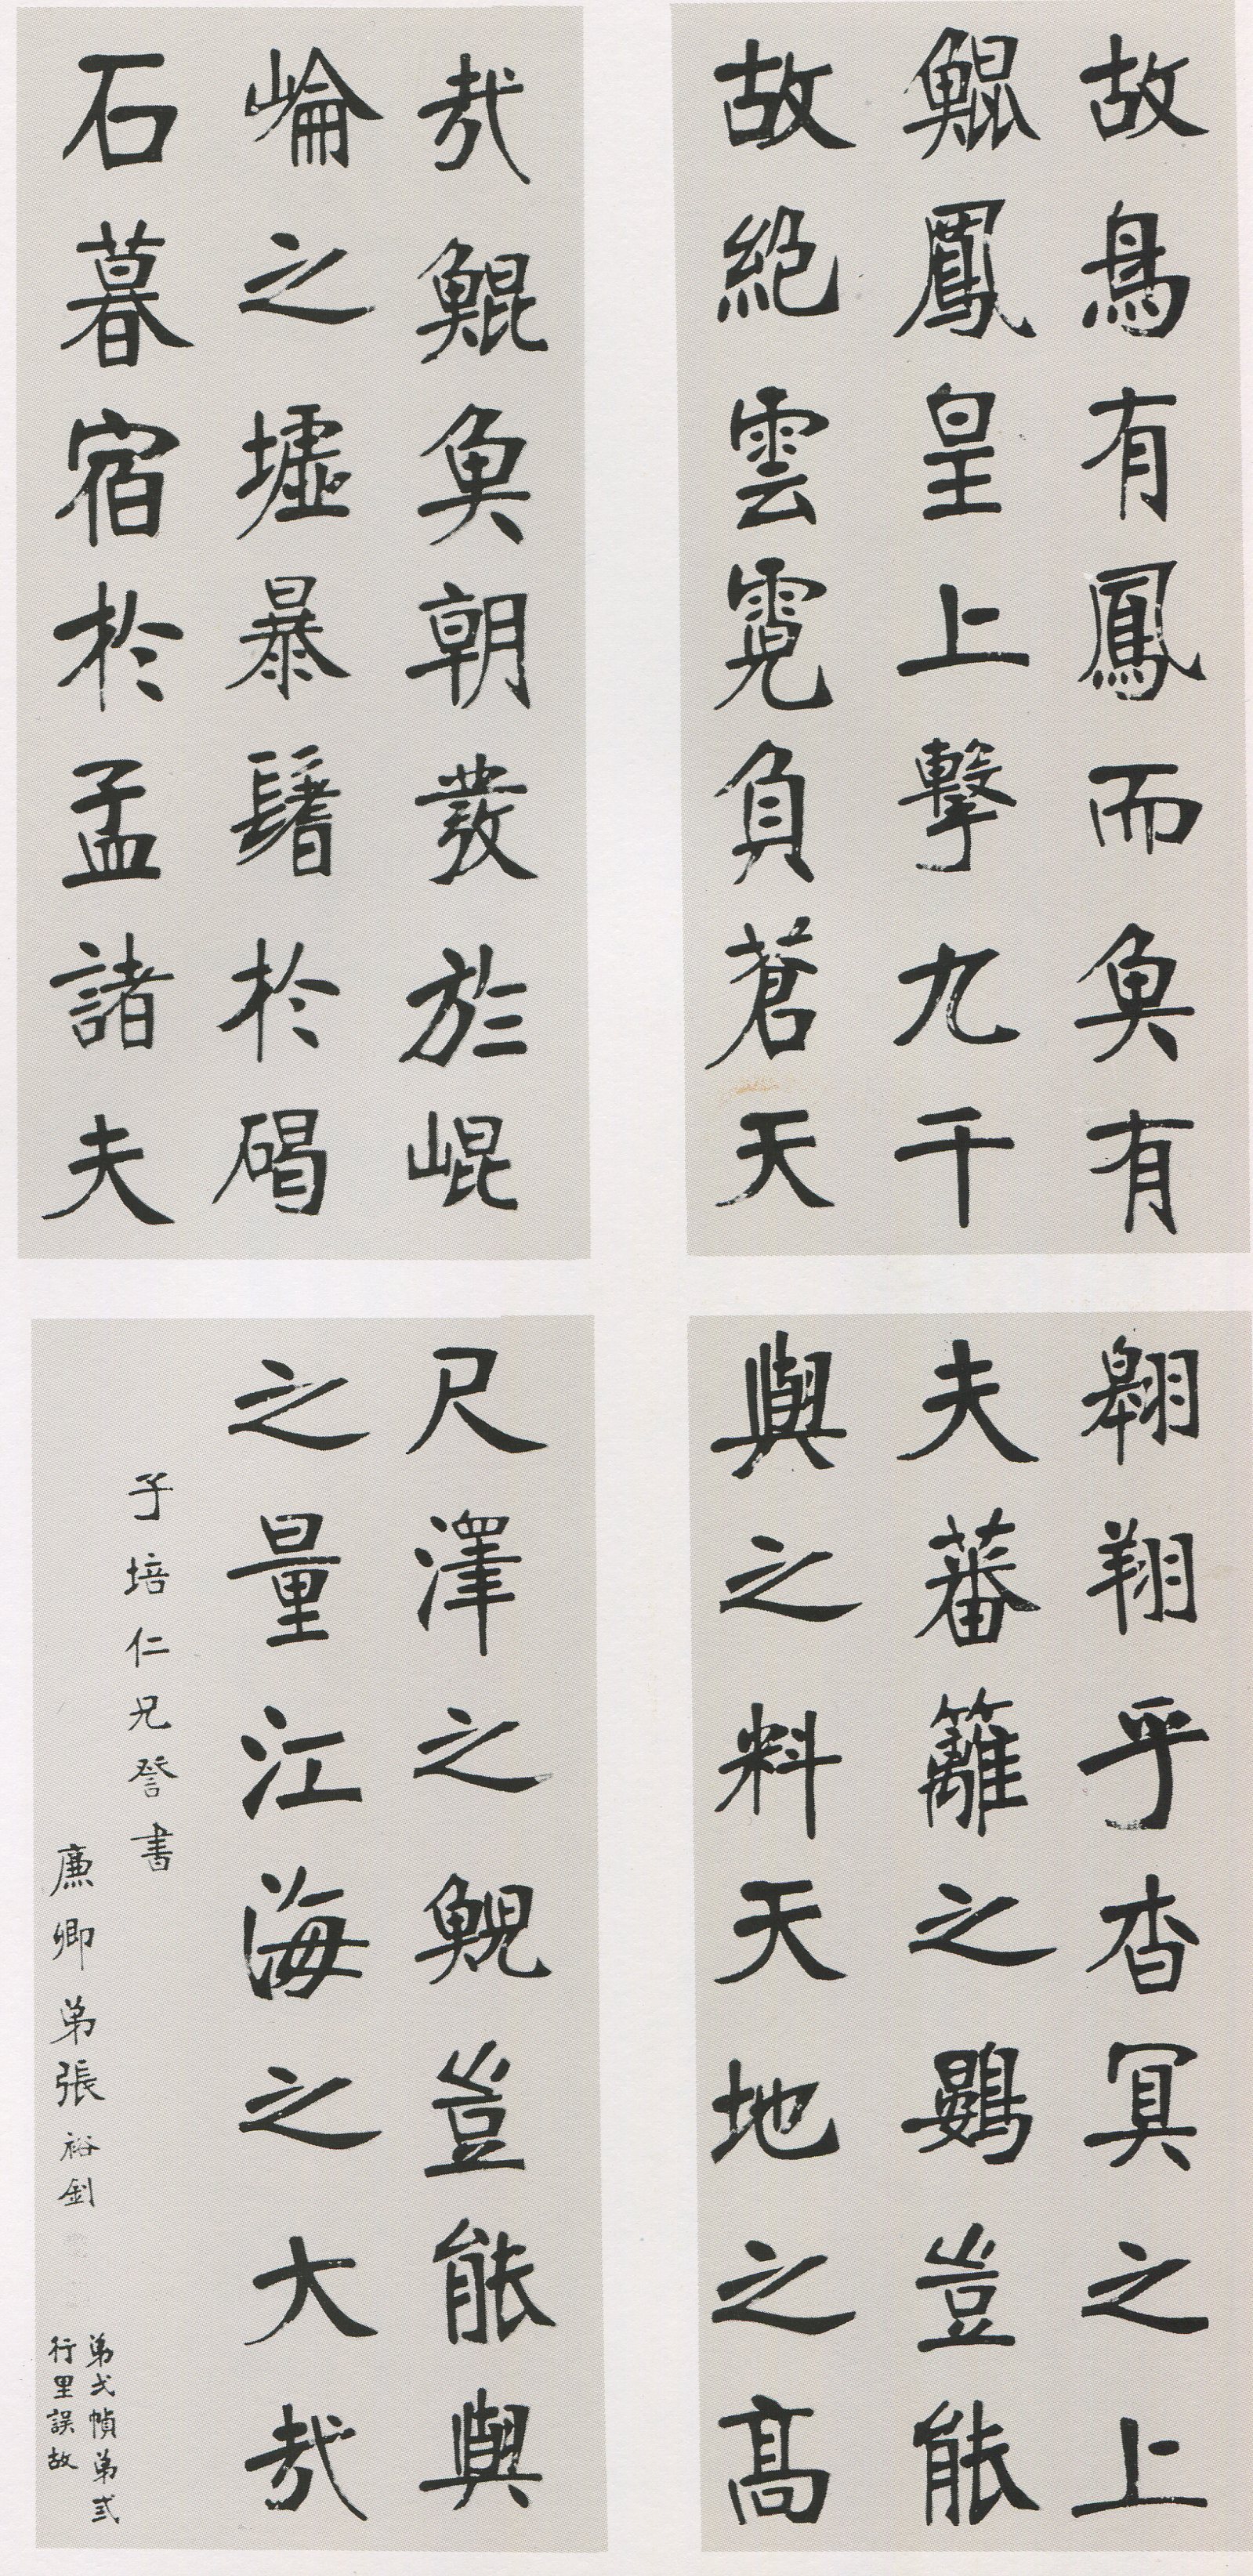 故鳥有鳳而魚有
鯤鳳皇上擊九千
故絕雲霓負蒼天
翱翔乎杳冥之上
夫蕃籬之鷃豈能
與之料天地之高
哉鯤魚朝發於崐
崘之墟暴鬐於碣
石暮宿於孟諸夫
尺澤之鯢豈能與
之量江海之大哉
子培仁兄詧書
廉卿弟張裕釗
弟弌幀弟弎
行里誤故